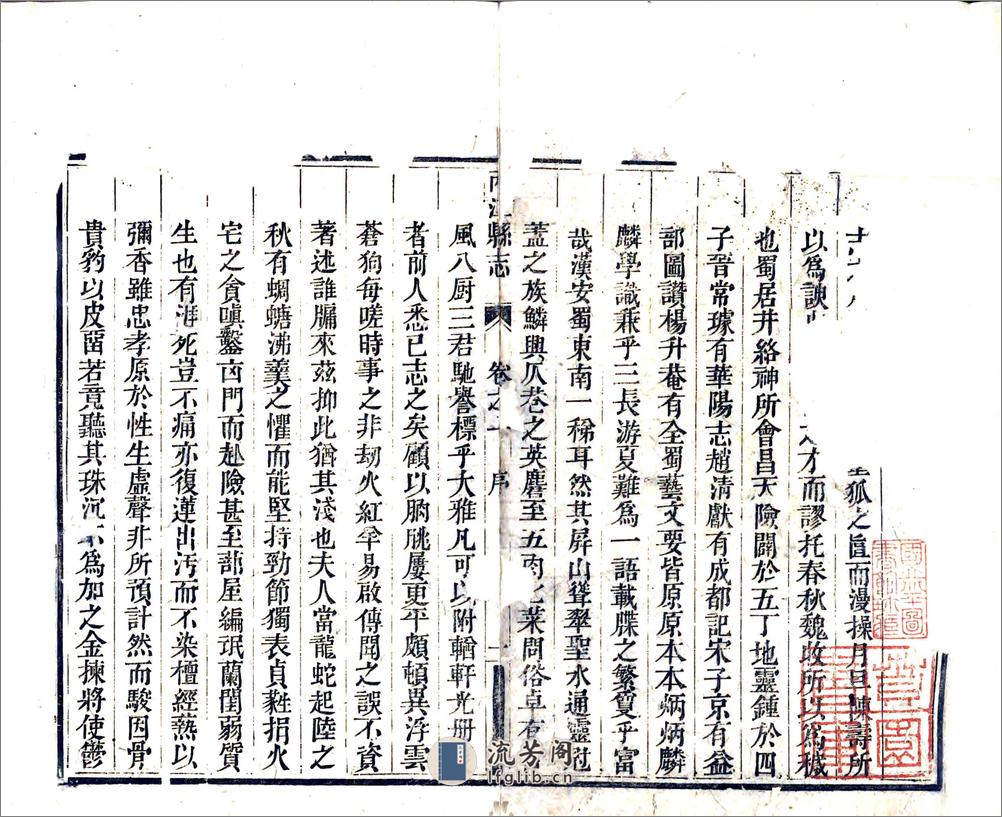 狐之直而漫操月旦陳壽所
以爲諛 之才而謬托春秋魏收所以爲穢
也蜀居井絡神所會昌天險闢於五丁地靈鍾於四
子晉常璩有華陽志趙清獻有成都記宋子京有益
部圖讚楊升菴有全蜀藝文要皆原原本本炳炳麟
麟學識兼乎三長游夏難爲一語載牒之繁質乎富
哉漢安蜀東南一稊耳然其屏山聳翠聖水通靈冠
蓋之族鱗興仄巷之英麏至五 萊問俗卓有
內江縣志 卷之一 序 一
風八厨三君馳譽標乎大雅凡可以附輶軒光册
者前人悉已志之矣顧以朒朓屢更平頗頓異浮雲
蒼狗每嗟時事之非刧火紅羊易啟傳聞之誤不資
著述誰牖來茲抑此猶其淺也夫人當龍蛇起陸之
秋有蜩螗沸羹之懼而能堅持勁節獨表貞蕤捐火
宅之貪嗔鑿凶門而赴險甚至蔀屋編氓蘭閨弱質
生也有涯死豈不痛亦復蓮出汚而不染檀經熱以
彌香雖忠孝原於性生虛聲非所預計然而駿因骨
貴豹以皮留若竟聽其珠沉不爲加之金揀將使鬱
流芳阁
lfglib.cn